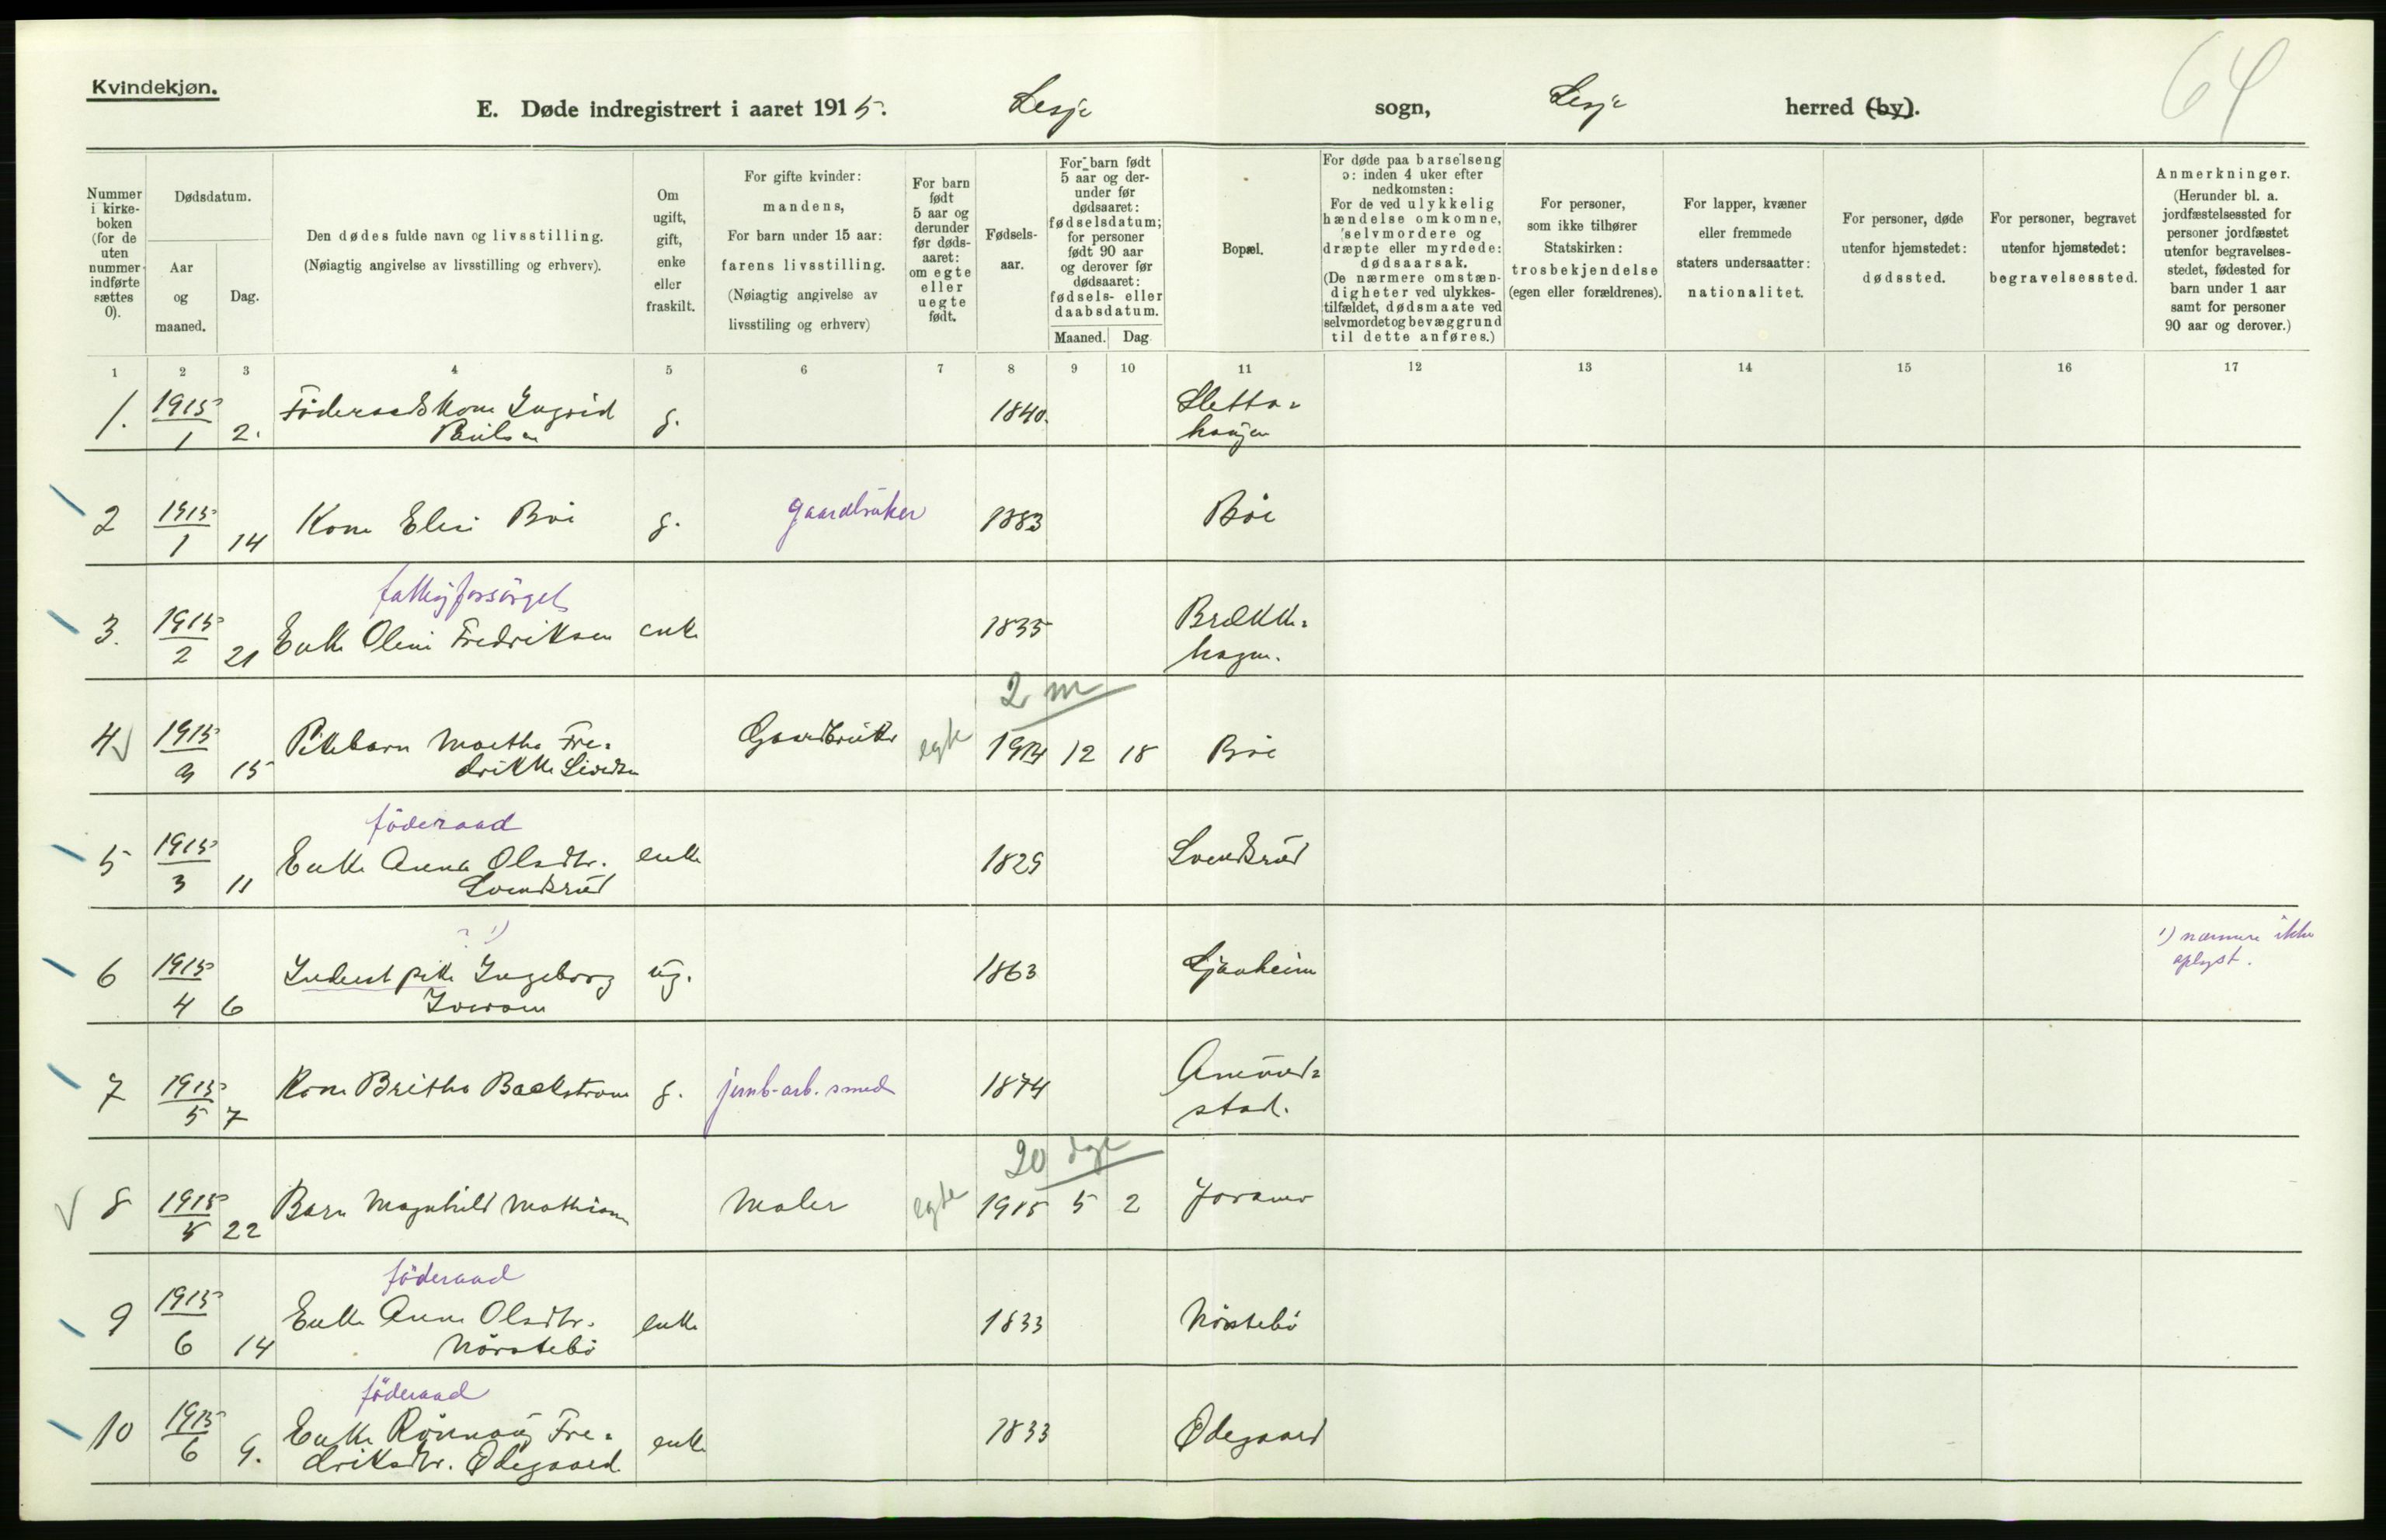 Kvindekjøn.
64
E. Døde indregistrert i aaret 1915. Lesje sogn, Lesje herred (by).
Nummer i kirkeboken (for de uten nummer indførte sættes 0).
Dødsdatum.
Aar og maaned.
Dag.
Den dødes fulde navn og livsstilling.
(Nøiagtig angivelse av livsstilling og erhverv).
Om ugift, gift, enke eller fraskilt.
For gifte kvinder: mandens,
For barn under 15 aar: farens livsstilling.
(Nøiagtig angivelse av livsstiling og erhverv)
For barn født 5 aar og derunder før dødsaaret: om egte eller uegte født.
Fødselsaar.
For barn født 5 aar og derunder før dødsaaret: fødselsdatum; for personer født 90 aar og derover før dødsaaret: fødsels- eller daabsdatum.
Maaned. Dag
Bopæl.
For døde paa barselseng ɔ: inden 4 uker efter nedkomsten:
For de ved ulykkelig hændelse omkomne, selvmordere og dræpte eller myrdede: dødsaarsak.
(De nærmere omstændigheter ved ulykkestilfældet, dødsmaate ved selvmordet og bevæggrund til dette anføres.)
For personer, som ikke tilhører Statskirken: trosbekjendelse (egen eller forældrenes).
For lapper, kvæner eller fremmede staters undersaatter: nationalitet.
For personer, døde utenfor hjemstedet: dødssted.
For personer, begravet utenfor hjemstedet: begravelsessted.
Anmerkninger.
(Herunder bl. a. jordfæstelsessted for personer jordfæstet utenfor begravelsesstedet, fødested for barn under 1 aar samt for personer 90 aar og derover.)
1 2 3 4 5 6 7 8 9 10 11 12 13 14 15 16 17
1. 1915/1 2. Föderaadskone Ingrid g. 1840. Sletta=
haugen
2 1915/1 14 Kone Eli Böe g. gaardbruker 1883 Böe
fattigforsörget
3. 1915/2 21 Enke Oline Fredriksen enke 1835 Brækk=
hagen.
2 m
4 1915 15 Pikebarn Marthe Fre= Gaardbruker egte 1914 12 18 Böe
drikke
föderaad
5 1915/3 11 Enke Anna Olsdtr. enke 1829 Svendsrud
Svendsrud
? 1)
6 1915/4 6 Inderst pike Ingeborg ug. 1863 1) nærmere ikke
Iverson oplyst.
7 1915/5 7 Kone Britha Backstrom g. jernb-arb. smed 1874
stad.
20 dge
8 1915/5 22 Barn Magnhild Mathisen Maler egte 1915 5 2 Joramo
föderaad
9 1915/6 14 Enke Anne Olsdtr. enke 1833 Nörstebö
Nörstebö
föderaad
10 1915/6 9. Enke Rönnaug Fre= enke 1833 Ödegaard
driksdtr. Ödegaard